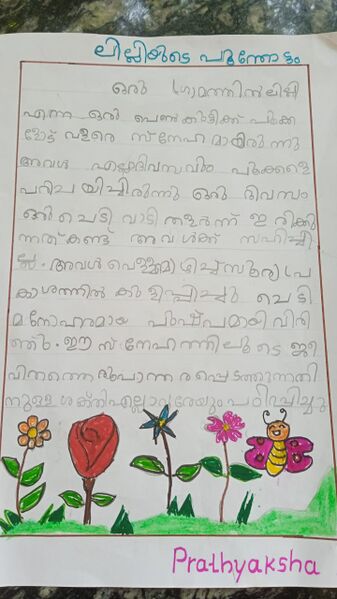 ലില്ലിയുടെ പൂന്തോട്ടം
ഒരു ഗ്രാമത്തിൽ ലില്ലി
എന്ന ഒരു പെൺകുട്ടിക്ക് പൂക്ക
ളോട് വളരെ സ്നേഹമായിരുന്നു
അവൾ എല്ലാദിവസവും പൂക്കളെ
പരിചയിച്ചിരുന്നു ഒരു ദിവസം
ഒരു ചെടി വാടി തളർന്ന് ഇരിക്കു
ന്നത് കണ്ട് അവൾക്ക് സഹിച്ചി
ല്ല. അവൾ വെള്ളമൊഴിച്ച് സൂര്യപ്ര
കാശത്തിൽ കുളിപ്പിച്ചു ചെടി
മനോഹരമായ പുഷ്പമായി വിരി
ഞ്ഞു. ഈ സ്നേഹത്തിലൂടെ ജീ
വിതത്തെ രൂപാന്തരപ്പെടുത്തുന്നതി
നുള്ള ശക്തി എല്ലാവരേയും പഠിപ്പിച്ചു
Prathyaksha